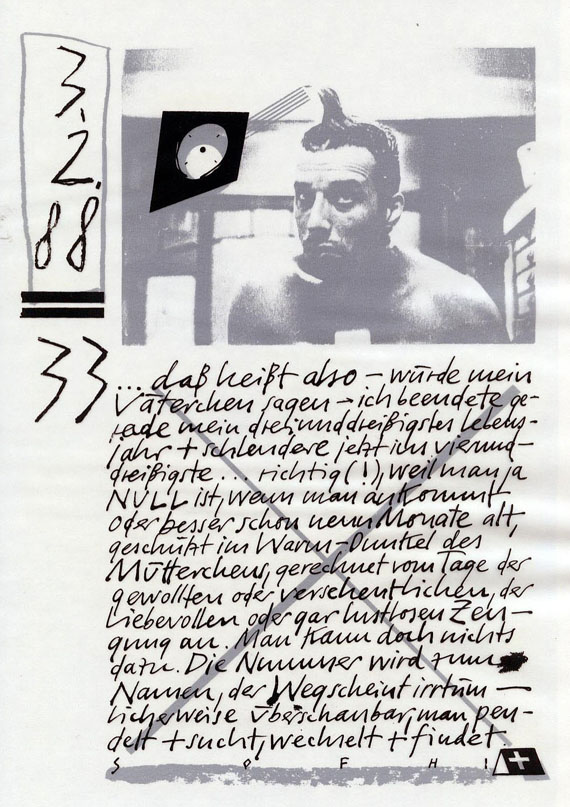 3.
2.
88
33
... daß heißt also – würde mein
Väterchen sagen – ich beendete ge-
rade mein dreiunddreißigstes Lebens-
jahr + schlendere jetzt ins vierund-
dreißigste ... richtig (!), weil man ja
NULL ist, wenn man ankommt
oder besser schon neun Monate alt,
geschützt im Warm-Dunkel des
Mütterchens, gerechnet vom Tage der
gewollten oder versehentlichen, der
liebevollen oder gar lustlosen Zeu-
gung an. Man kann doch nichts
dazu. Die Nummer wird zum
Namen, der Weg scheint irrtüm-
licherweise überschaubar, man pen-
delt + sucht, wechselt + findet
S O F H I +